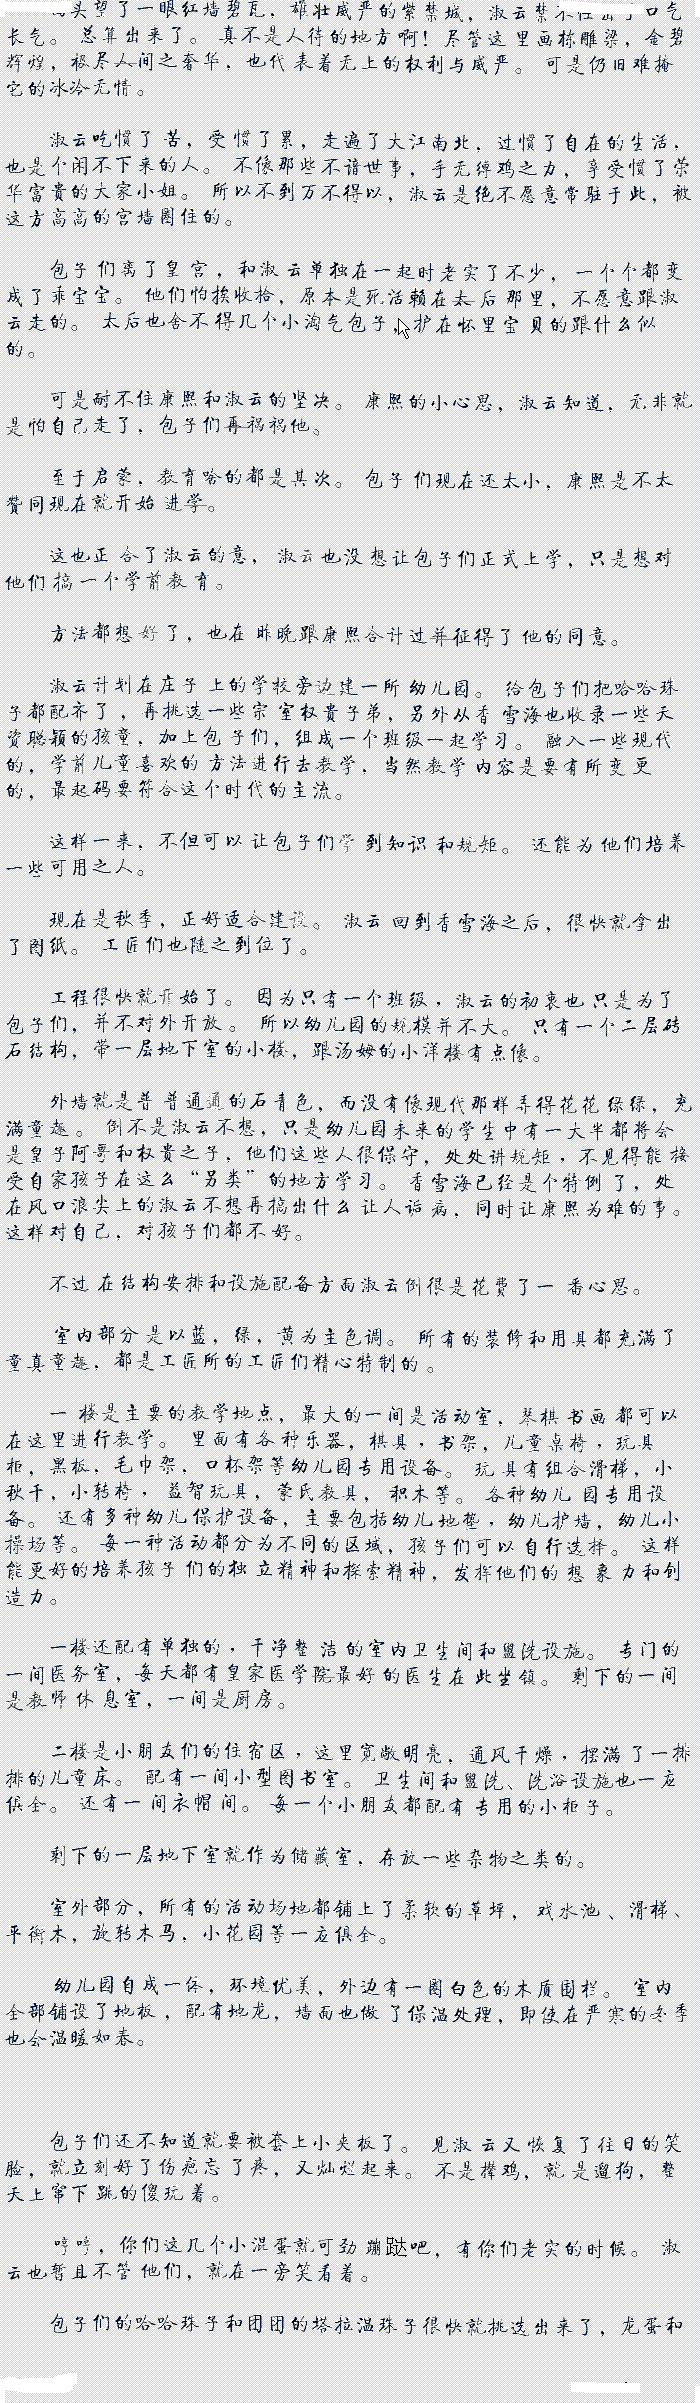 头望了一眼红墙碧瓦，雄壮威严的紫禁城，淑云禁不住出了口气
长气。 总算出来了。 真不是人待的地方啊！尽管这里画栋雕梁，金碧
辉煌，极尽人间之奢华，也代表着无上的权利与威严。 可是仍旧难掩
它的冰冷无情。
淑云吃惯了苦，受惯了累，走遍了大江南北，过惯了自在的生活，
也是个闲不下来的人。 不像那些不谙世事，手无缚鸡之力，享受惯了荣
华富貴的大家小姐。 所以不到万不得以，淑云是绝不愿意常驻于此，被
这方高高的宫墙圈住的。
包子们离了皇宫，和淑云单独在一起时老实了不少，一个个都变
成了乖宝宝。 他们怕挨收拾，原本是死活赖在太后那里，不愿意跟淑
云走的。 太后也舍不得几个小淘气包子，护在怀里宝贝的跟什么似
的。
可是耐不住康熙和淑云的坚决。 康熙的小心思，淑云知道，无非就
是怕自己走了，包子们再祸祸他。
至于启蒙，教育啥的都是其次。 包子们现在还太小，康熙是不太
赞同现在就开始进学。
这也正合了淑云的意，淑云也没想让包子们正式上学，只是想对
他们搞一个学前教育。
方法都想好了，也在昨晚跟康熙合计过并征得了他的同意。
淑云计划在庄子上的学校旁边建一所幼儿园。 给包子们把哈哈珠
子都配齐了，再挑选一些宗室权貴子弟，另外从香雪海也收录一些天
资聪颖的孩童，加上包子们，组成一个班级一起学习。 融入一些现代
的，学前儿童喜欢的方法进行去教学，当然教学内容是要有所变更
的，最起码要符合这个时代的主流。
这样一来，不但可以让包子们学到知识和规矩。 还能为他们培养
一些可用之人。
现在是秋季，正好适合建设。 淑云回到香雪海之后，很快就拿出
了图纸。 工匠们也随之到位了。
工程很快就开始了。 因为只有一个班级，淑云的初衷也只是为了
包子们，并不对外开放。 所以幼儿园的规模并不大。 只有一个二层砖
石结构，带一层地下室的小楼，跟汤姆的小洋楼有点像。
外墙就是普普通通的石青色，而没有像现代那样弄得花花绿绿，充
满童趣。 倒不是淑云不想，只是幼儿园未来的学生中有一大半都将会
是皇子阿哥和权贵之子，他们这些人很保守，处处讲规矩，不见得能接
受自家孩子在这么“另类”的地方学习。 香雪海已经是个特例了，处
在风口浪尖上的淑云不想再搞出什么让人诟病，同时让康熙为难的事。
这样对自己，对孩子们都不好。
不过在结构安排和设施配备方面淑云倒很是花费了一番心思。
室内部分是以蓝，绿，黄为主色调。 所有的装修和用具都充满了
童真童趣，都是工匠所的工匠们精心特制的。
一楼是主要的教学地点，最大的一间是活动室，琴棋书画都可以
在这里进行教学。 里面有各种乐器，棋具，书架，儿童桌椅，玩具
柜，黑板，毛巾架，口杯架等幼儿园专用设备。 玩具有组合滑梯，小
秋千，小转椅，益智玩具，蒙氏教具，积木等。 各种幼儿园专用设
备。 还有多种幼儿保护设备，主要包括幼儿地垫，幼儿护墙，幼儿小
操场等。 每一种活动都分为不同的区域，孩子们可以自行选择。 这样
能更好的培养孩子们的独立精神和探索精神，发挥他们的想象力和创
造力。
一楼还配有单独的，干净整洁的室内卫生间和盥洗设施。 专门的
一间医务室，每天都有皇家医学院最好的医生在此坐镇。 剩下的一间
是教师休息室，一间是厨房。
二楼是小朋友们的住宿区，这里宽敞明亮，通风干燥，摆满了一排
排的儿童床。 配有一间小型图书室。 卫生间和盥洗、洗浴设施也一应
俱全。 还有一间衣帽间。 每一个小朋友都配有专用的小柜子。
剩下的一层地下室就作为储藏室，存放一些杂物之类的。
室外部分，所有的活动场地都铺上了柔软的草坪，戏水池、滑梯、
平衡木，旋转木马，小花园等一应俱全。
幼儿园自成一体，环境优美，外边有一圈白色的木质围栏。 室内
全部铺设了地板，配有地龙，墙面也做了保温处理，即使在严寒的冬季
也会温暖如春。
包子们还不知道就要被套上小夹板了。 见淑云又恢复了往日的笑
脸，就立刻好了伤疤忘了疼，又灿烂起来。 不是撵鸡，就是遛狗，整
天上窜下跳的傻玩着。
哼哼，你们这几个小混蛋就可劲蹦跶吧，有你们老实的时候。 淑
云也暂且不管他们，就在一旁笑看着。
包子们的哈哈珠子和团团的塔拉温珠子很快就挑选出来了，龙蛋和